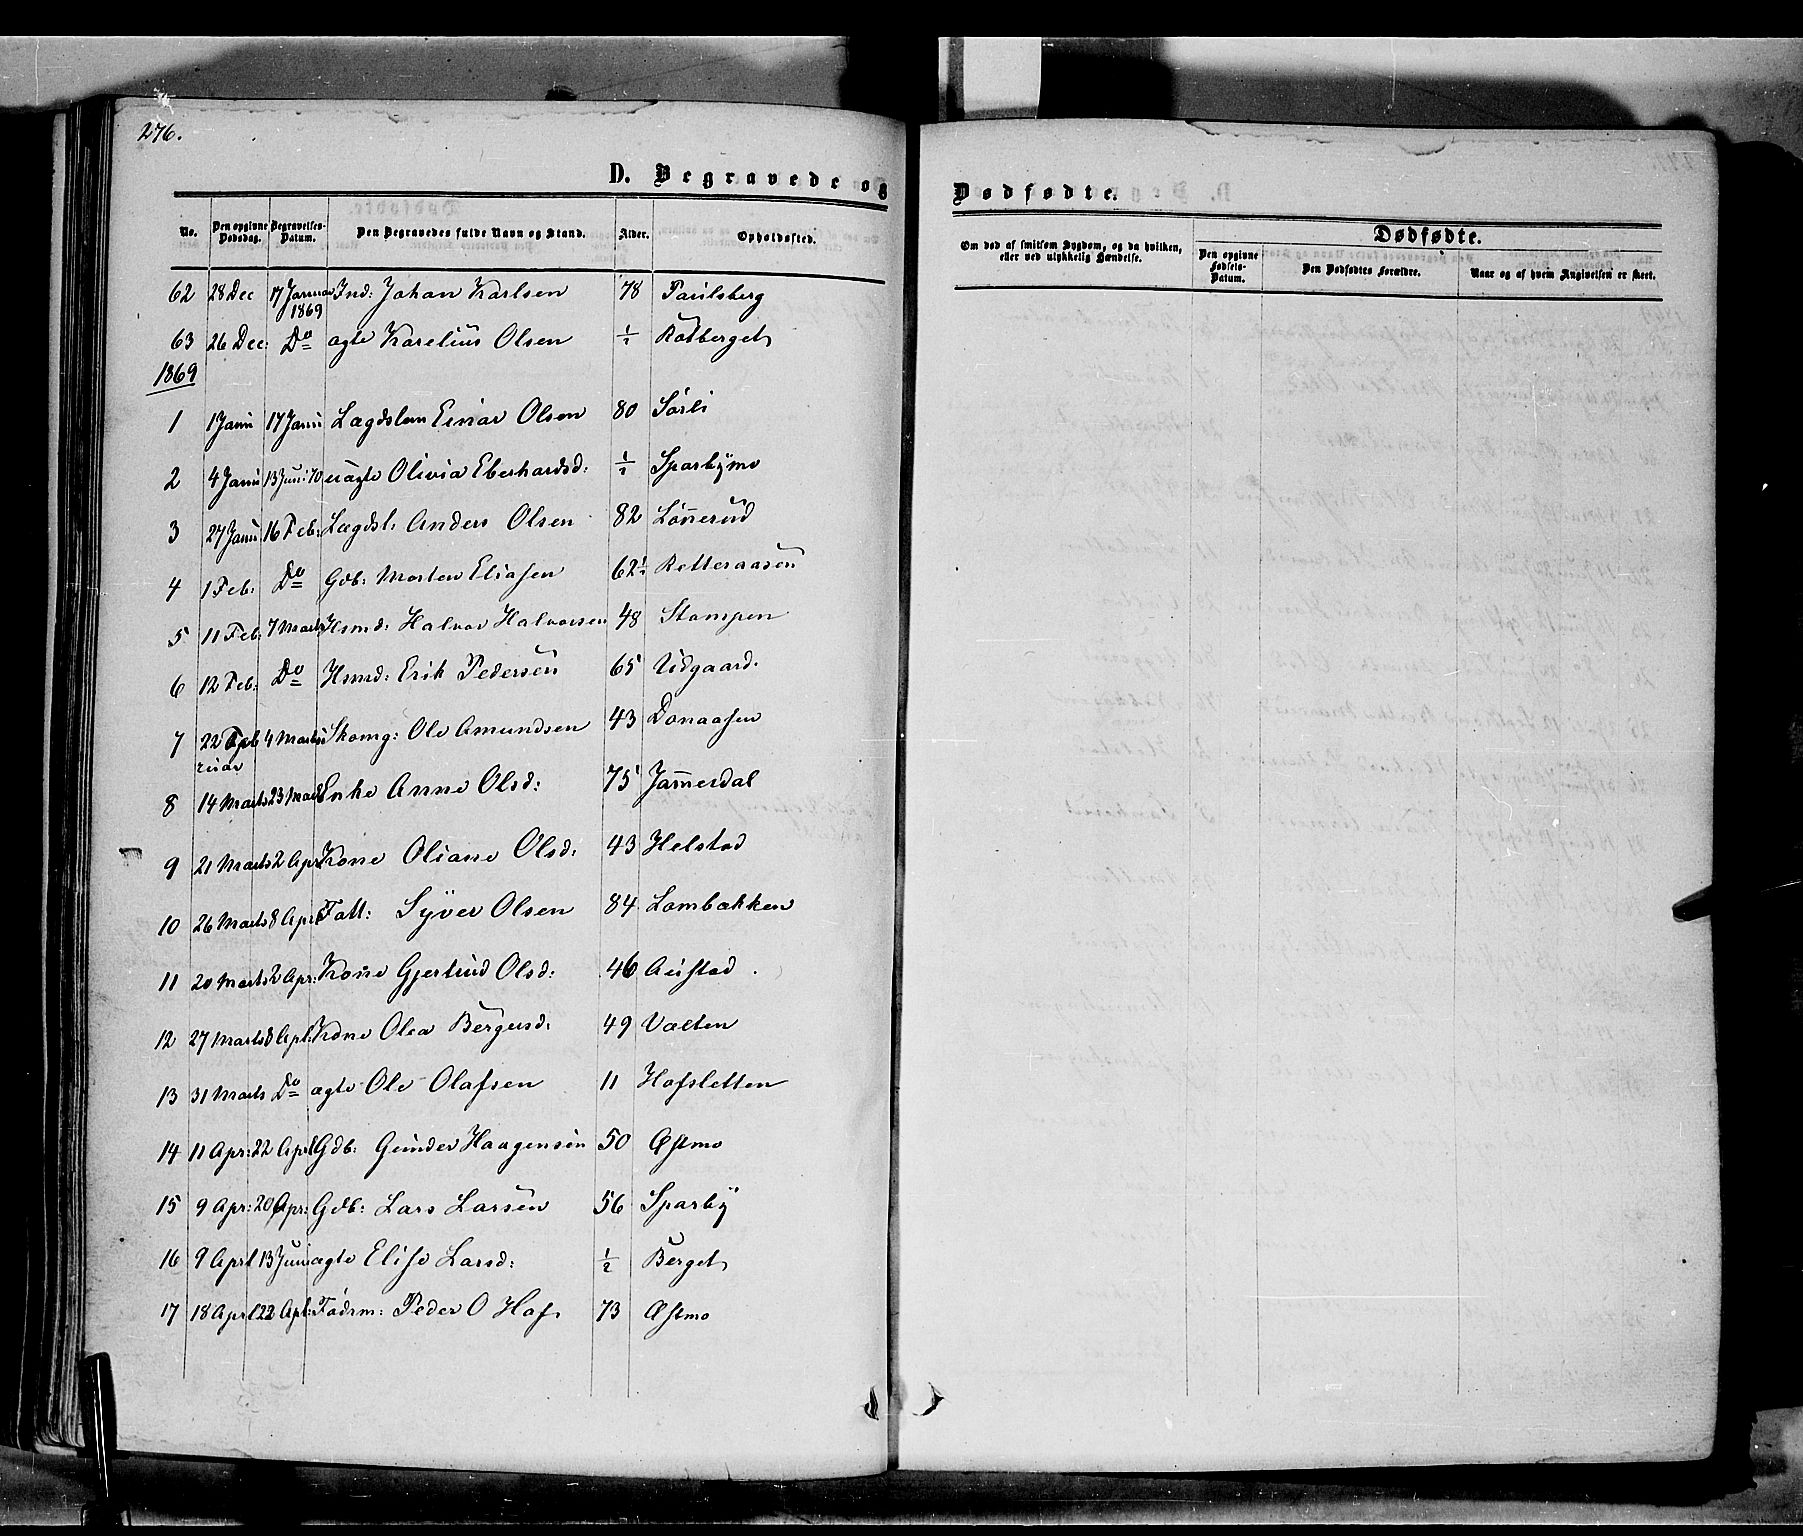 276.
D. Begravede og
No. Den opgivne Dødsdag. Begravelses-Datum. Den Begravedes fulde Navn og Stand. Alder. Opholdssted.
62 28 Dec 17 Januar 1869 Ind: Johan Karlsen 78 Paulsberg
63 26 Dec: Do ægte Karelius Olsen ½ Rotberget
1869
1 1 Janu 17 Janu Lægdslem Einar Olsen 80 Sørli
2 4 Janu 13 Juni 70 uægte Olivia Eberhardsd: ½ Sparbymo
3 27 Janu 16 Feb: Lægdsl: Anders Olsen 82 Lønnerud
4 1 Feb: Do Gdb: Morten Eliasen 62½ Retteraasen
5 11 Feb: 7 Marts Hsmd: Halvor Halvorsen 48 Stampen
6 12 Feb: Do Hsmd: Erik Pedersen 65 Udgaard.
7 22 Februar 4 Marts Skomg: Ole Amundsen 43 Donaasen
8 14 Marts 23 Marts Enke Anne Olsd: 75 Jammerdal
9 21 Marts 2 Apr Kone Oliane Olsd: 43 Helstad
10 26 Marts 8 Apr Fatt: Syver Olsen 84 Lombækken
11 20 Marts 2 Apr: Kone Gjertrud Olsd: 46 Austad
12 27 Marts 8 Apl: Kone Olea Bergersd: 49 Valten
13 31 Marts Do ægte Ole Olafsen 11 Hofsletten
14 11 Apr: 22 Aprl Gdb: Gunder Haagensen 50 Østmo
15 9 Apr: 20 Apr: Gdb: Lars Larsen 56 Sparby
16 9 Aprl 13 Juni ægte Elise Larsd: ½ Berget
17 18 Aprl 22 Apl: Födrm: Peder O Hof 73 Østmo
Dødfødte.
Om død af smitsom Sygdom, og da hvilken, eller ved ulykkelig Hændelse.
Dødfødte.
Den opgivne Fødsels-Datum. Den Dødfødtes Forældre. Naar og af hvem Angivelsen er skeet.